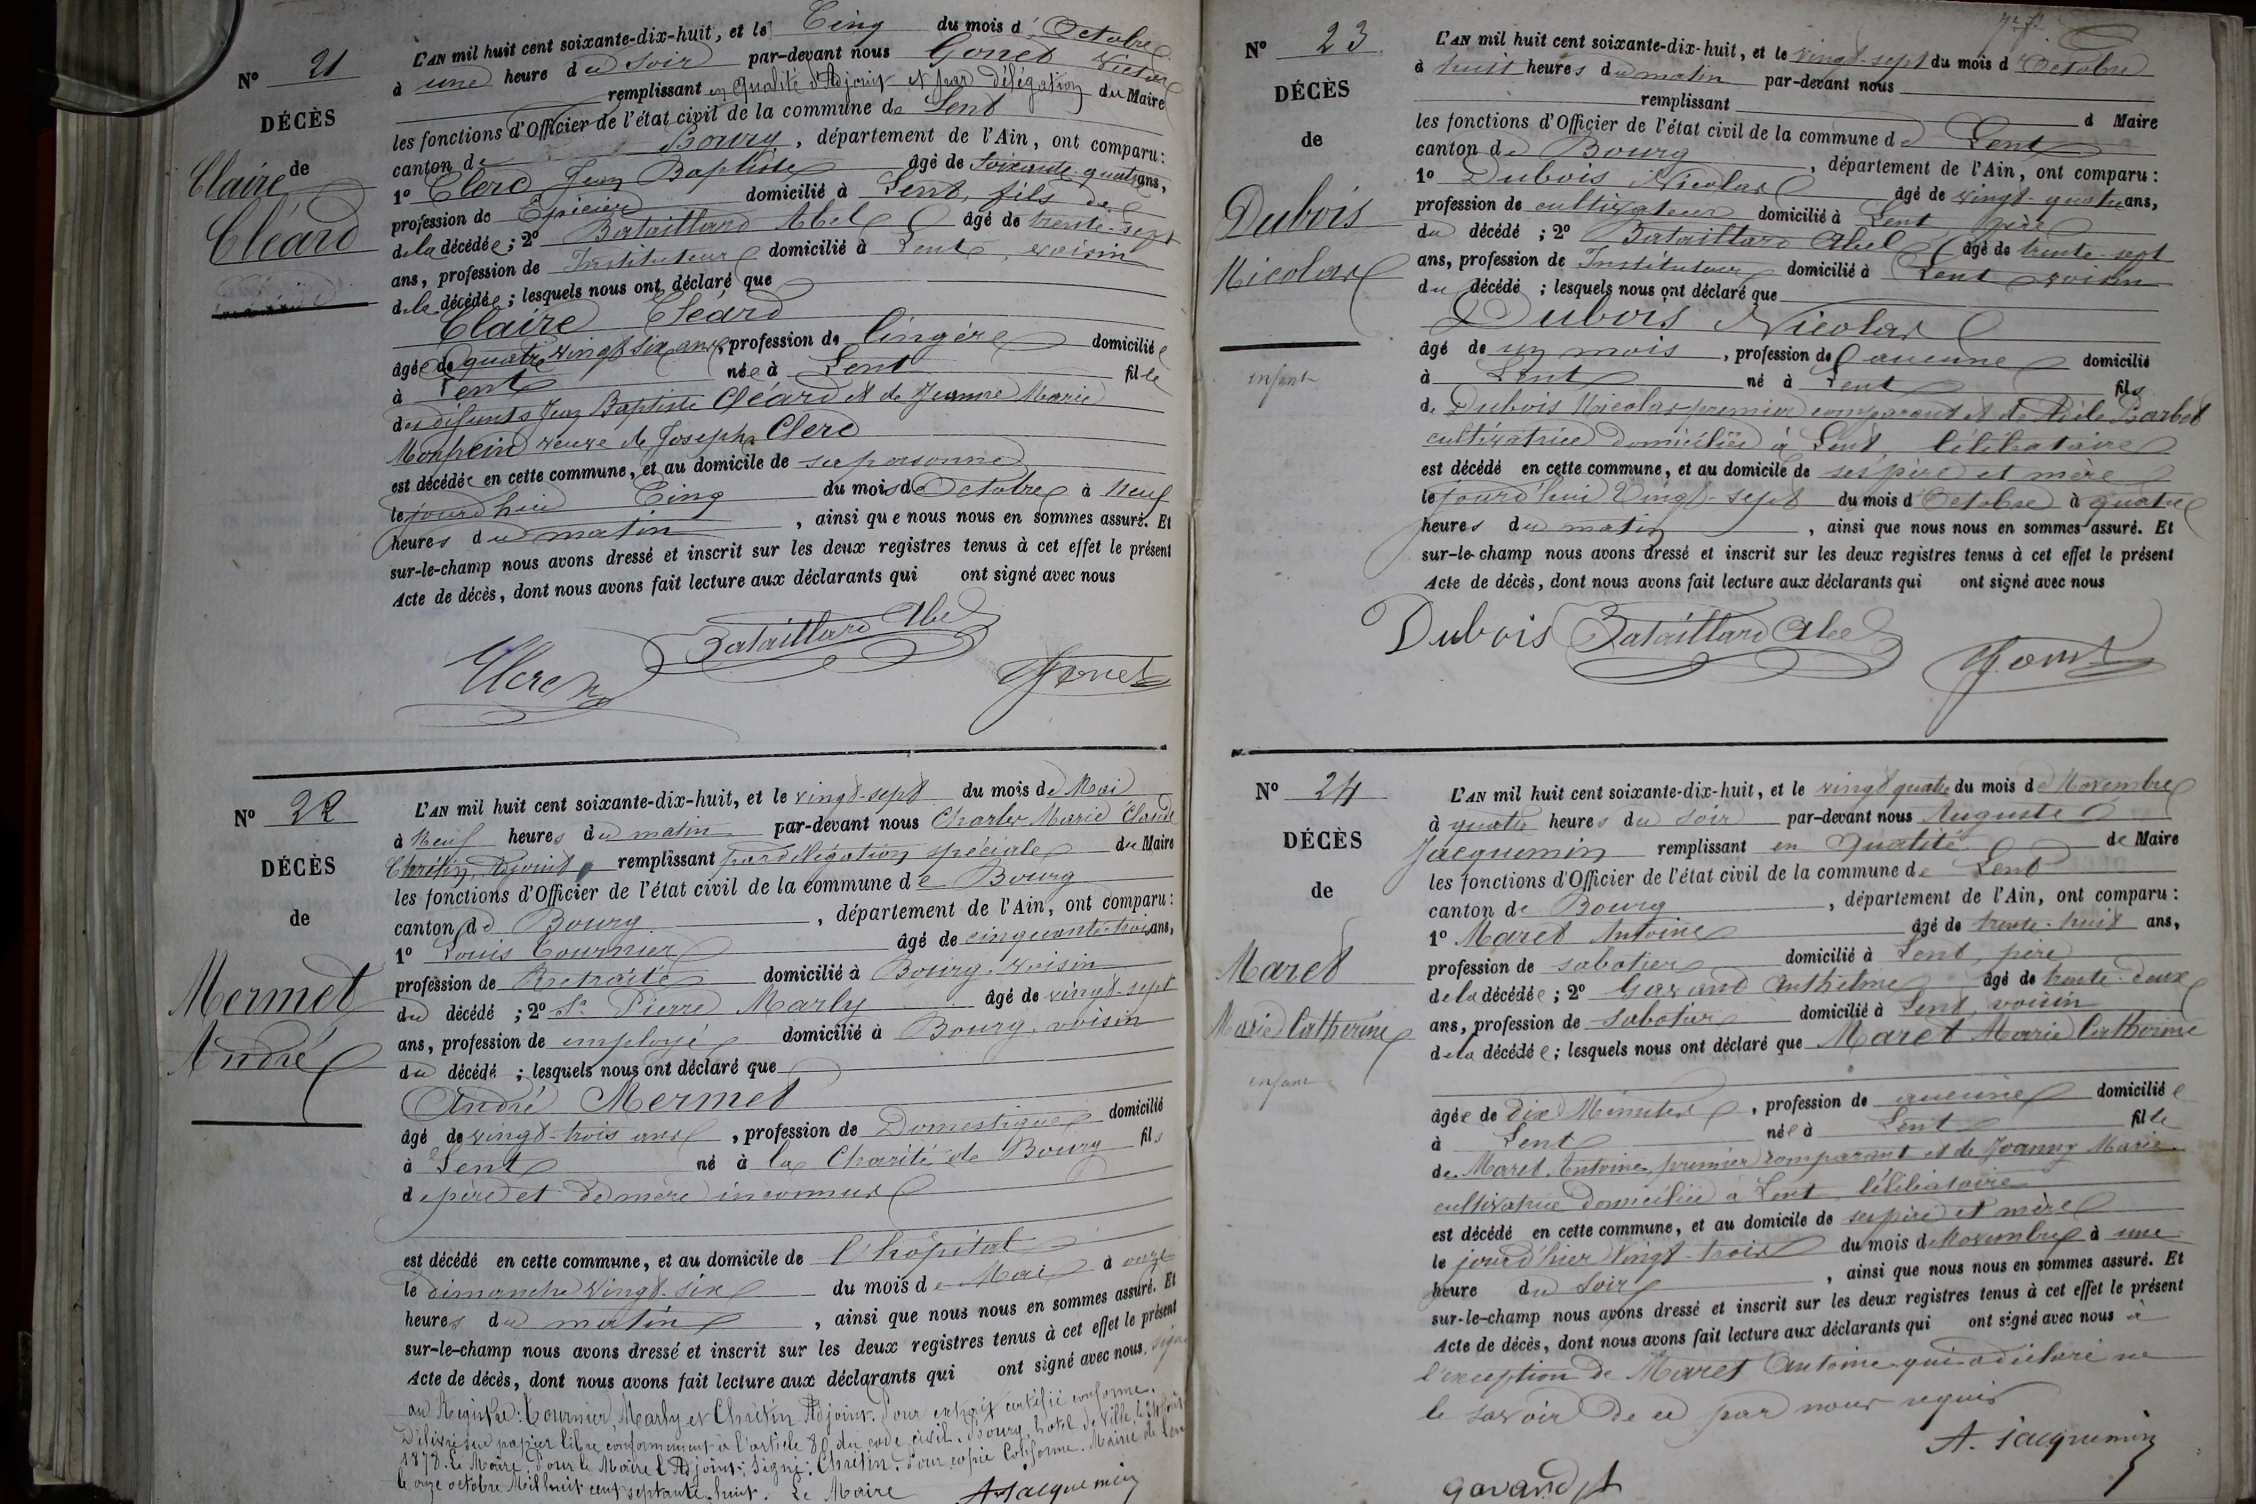 N° 21
DÉCÈS
de
Claire
Cléard
L'AN mil huit cent soixante-dix-huit, et le Cinq du mois d'Octobre
à une heure du soir par-devant nous Gonet Victor
remplissant en qualité d'Adjoint et par délégation du Maire
les fonctions d'Officier de l'état civil de la commune de Lent
canton de Bourg, département de l'Ain, ont comparu :
1° Clerc Jean Baptiste âgé de soixante quatre ans,
profession de Epicier domicilié à Lent, fils de
de la décédée ; 2° Bataillard Abel âgé de trente-sept
ans, profession de Instituteur domicilié à Lent, voisin
de la décédée ; lesquels nous ont déclaré que
Claire Cléard
âgée de quatre vingt six ans, profession de lingère domiciliée
à Lent née à Lent fille
des défunts Jean Baptiste Cléard et de Jeanne Marie
veuve de Joseph Clerc
est décédée en cette commune, et au domicile de sa personne
le jourd'hui Cinq du mois d'Octobre à neuf
heures du matin, ainsi que nous nous en sommes assuré. Et
sur-le-champ nous avons dressé et inscrit sur les deux registres tenus à cet effet le présent
Acte de décès, dont nous avons fait lecture aux déclarants qui ont signé avec nous
Clerc Bataillard Abel Gonet
N° 22
DÉCÈS
de
Mermet
André
L'AN mil huit cent soixante-dix-huit, et le vingt-sept du mois de Mai
à neuf heures du matin par-devant nous Charles Marie Claude
Chrétin, Adjoint remplissant par délégation spéciale du Maire
les fonctions d'Officier de l'état civil de la commune de Bourg
canton de Bourg, département de l'Ain, ont comparu :
1° Louis Tournier âgé de cinquante-trois ans,
profession de Retraité domicilié à Bourg, voisin
du décédé ; 2° Pierre Marly âgé de vingt-sept
ans, profession de employé domicilié à Bourg, voisin
du décédé ; lesquels nous ont déclaré que
André Mermet
âgé de vingt-trois ans, profession de Domestique domicilié
à Lent né à la Charité de Bourg fils
de père et de mère inconnus
est décédé en cette commune, et au domicile de l'hôpital
le dimanche vingt-six du mois de Mai à onze
heures du matin, ainsi que nous nous en sommes assuré. Et
sur-le-champ nous avons dressé et inscrit sur les deux registres tenus à cet effet le présent
Acte de décès, dont nous avons fait lecture aux déclarants qui ont signé avec nous. signé
au Registre : Tournier, Marly et Chrétin Adjoint. Pour extrait certifié conforme.
Délivré sur papier libre conformément à l'article 80 du code civil. Bourg, hôtel de ville, le 24
1878. Le Maire, Pour le Maire l'Adjoint, Signé : Chrétin. Pour copie Conforme. Mairie de Lent
le onze octobre Mil huit cent septante-huit. Le Maire A. Jacquemin
N° 23
DÉCÈS
de
Dubois
Nicolas
enfant
L'AN mil huit cent soixante-dix-huit, et le vingt-sept du mois d'Octobre
à huit heures du matin par-devant nous
remplissant d Maire
les fonctions d'Officier de l'état civil de la commune de Lent
canton de Bourg, département de l'Ain, ont comparu :
1° Dubois Nicolas âgé de vingt-quatre ans,
profession de cultivateur domicilié à Lent, père
du décédé ; 2° Bataillard Abel âgé de trente-sept
ans, profession de Instituteur domicilié à Lent voisin
du décédé ; lesquels nous ont déclaré que
Dubois Nicolas
âgé de un mois, profession de aucune domicilié
à Lent né à Lent fils
de Dubois Nicolas premier comparant et de Adèle Barbet
cultivatrice domiciliée à Lent célibataire
est décédé en cette commune, et au domicile de ses père et mère
le jourd'hui Vingt-sept du mois d'Octobre à quatre
heures du matin, ainsi que nous nous en sommes assuré. Et
sur-le-champ nous avons dressé et inscrit sur les deux registres tenus à cet effet le présent
Acte de décès, dont nous avons fait lecture aux déclarants qui ont signé avec nous
Dubois Bataillard Abel Gonet
N° 24
DÉCÈS
de
Maret
Marie Catherine
enfant
L'AN mil huit cent soixante-dix-huit, et le vingt quatre du mois de Novembre
à quatre heures du soir par-devant nous Auguste
Jacquemin remplissant en Qualité de Maire
les fonctions d'Officier de l'état civil de la commune de Lent
canton de Bourg, département de l'Ain, ont comparu :
1° Maret Antoine âgé de trente-huit ans,
profession de sabotier domicilié à Lent, père
de la décédée ; 2° Gavand Anthelme âgé de trente-deux
ans, profession de sabotier domicilié à Lent, voisin
de la décédée ; lesquels nous ont déclaré que Maret Marie Catherine
âgée de dix Minutes, profession de aucune domiciliée
à Lent née à Lent fille
de Maret Antoine, premier comparant et de Joanny Marie
cultivatrice domiciliée à Lent, célibataire
est décédé en cette commune, et au domicile de ses père et mère
le jour d'hier Vingt-trois du mois de Novembre à une
heure du soir, ainsi que nous nous en sommes assuré. Et
sur-le-champ nous avons dressé et inscrit sur les deux registres tenus à cet effet le présent
Acte de décès, dont nous avons fait lecture aux déclarants qui ont signé avec nous à
l'exception de Maret Antoine qui a déclaré ne
le savoir de ce par nous requis
A. Jacquemin
Gavand